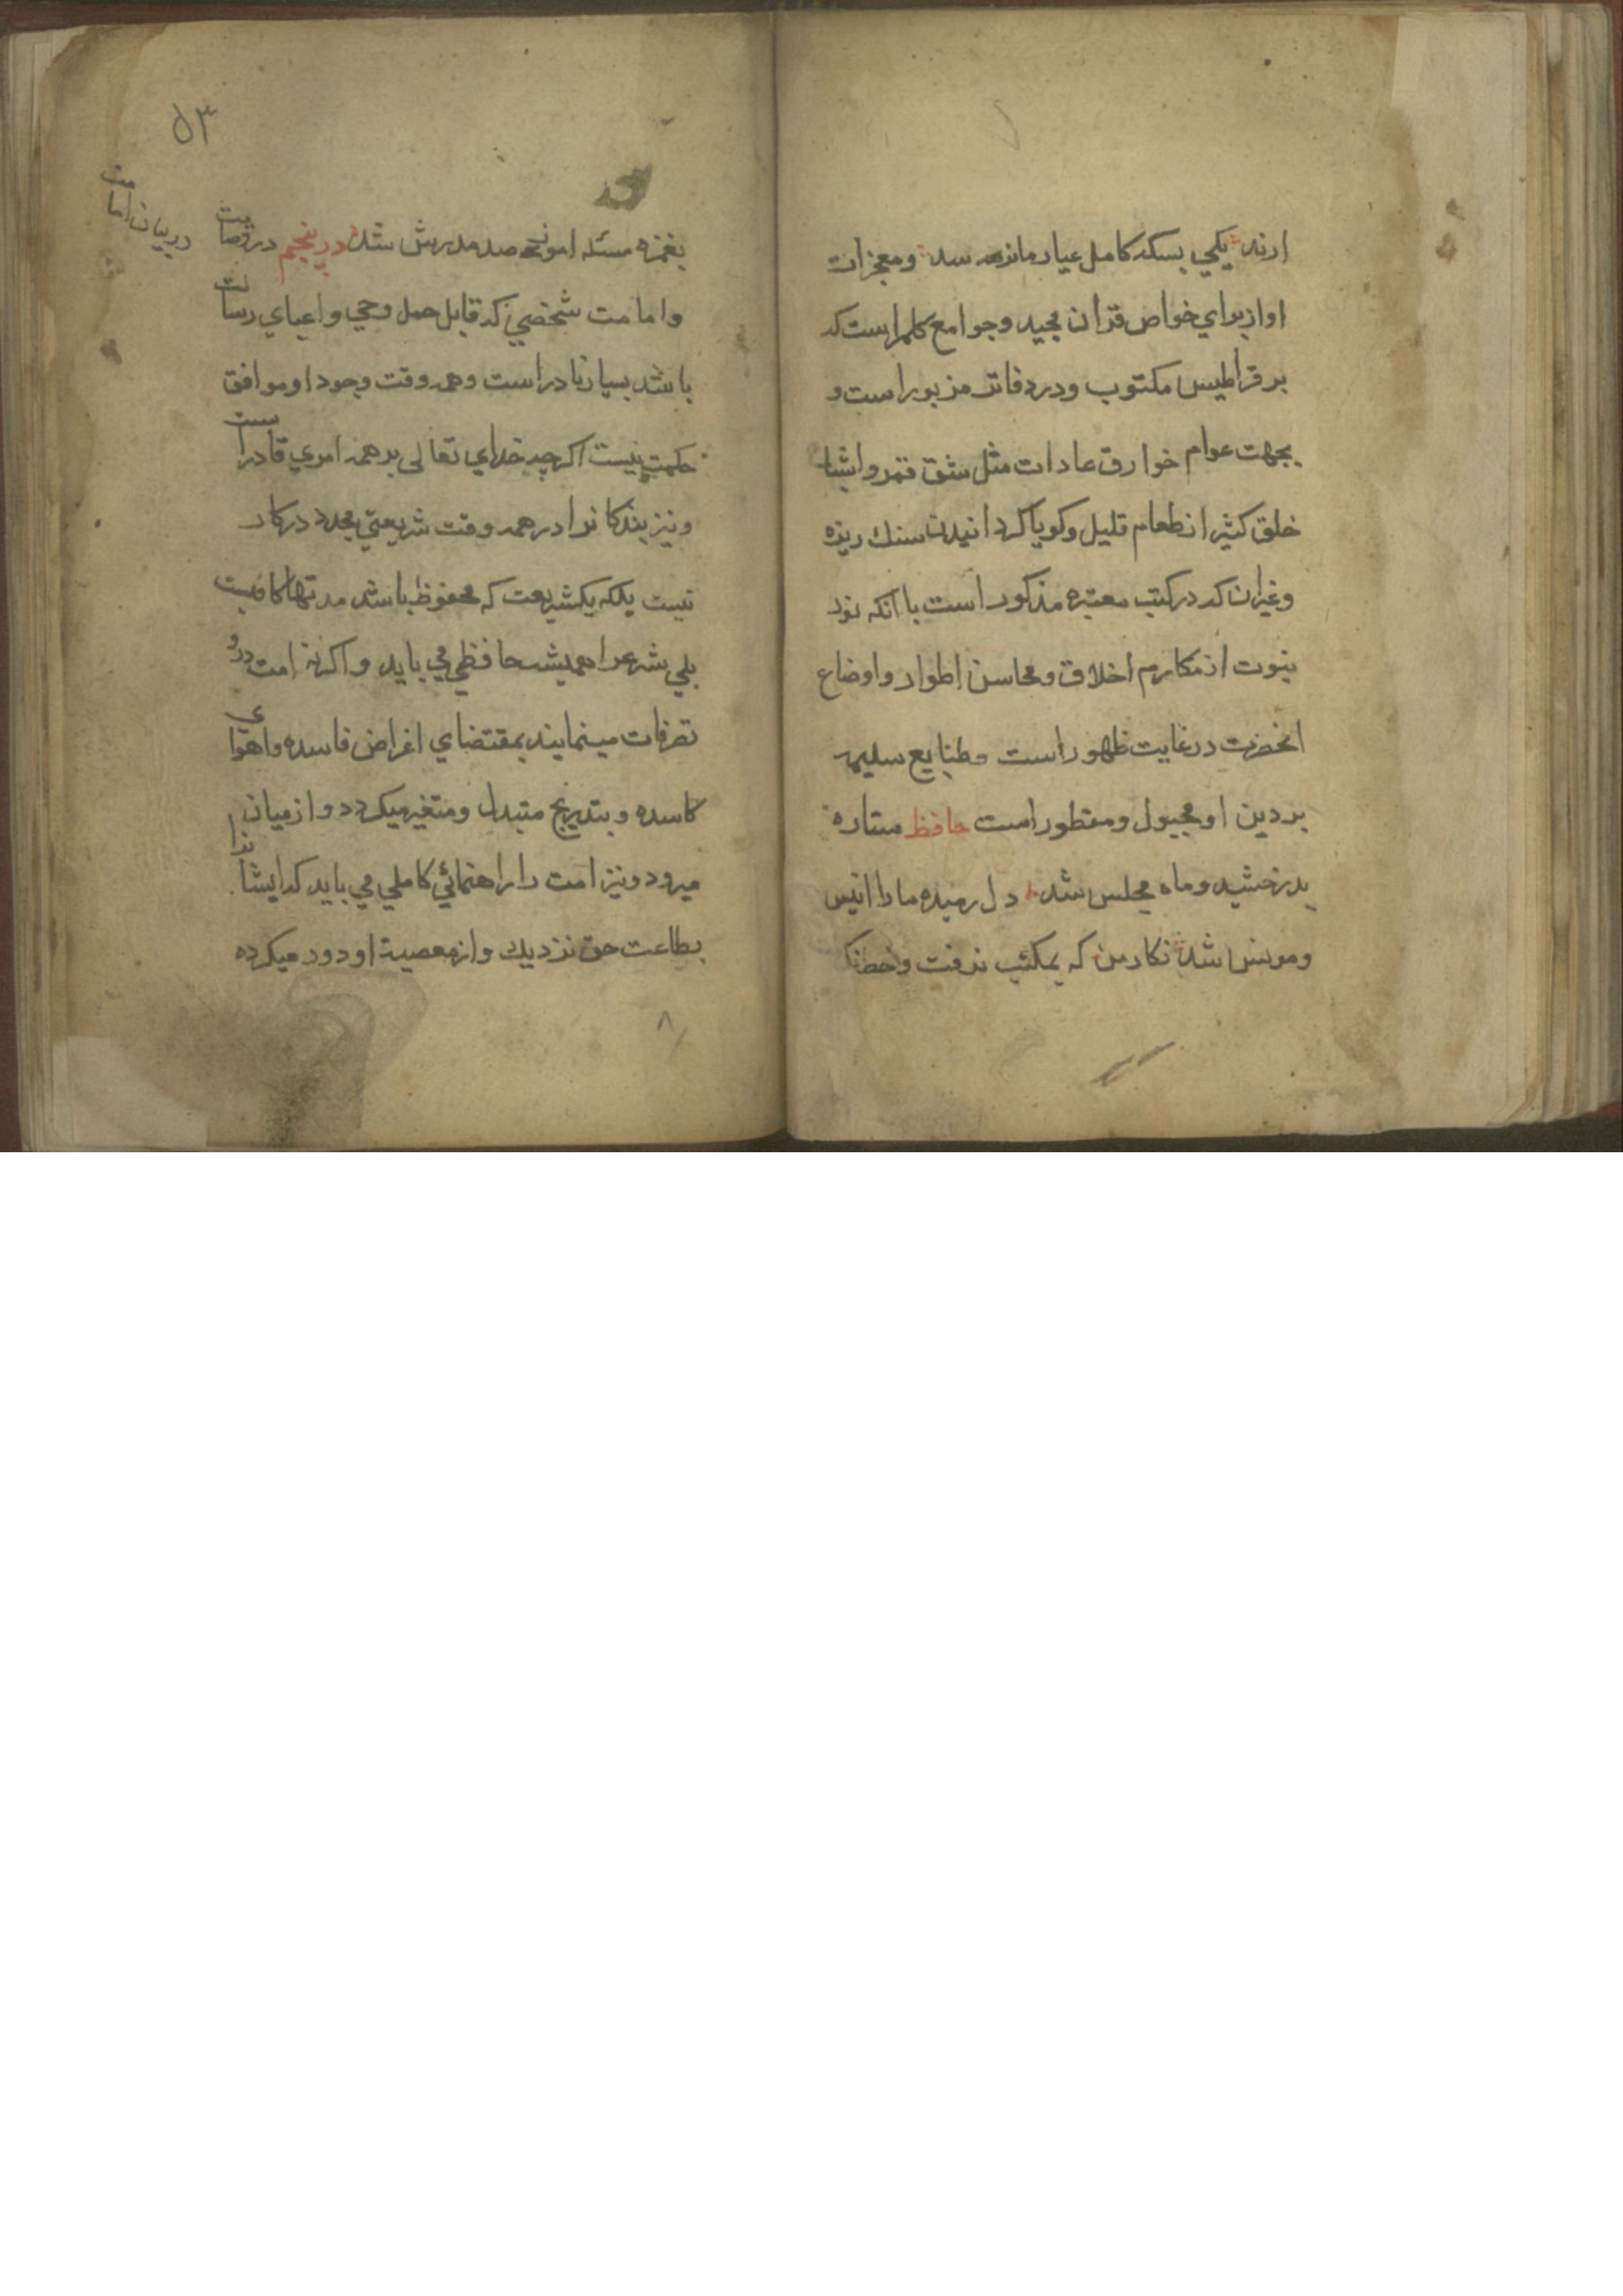 ارند یکی بسکه کامل عیار ما نرسد و معجزات
او از برای خواص قران مجید و جوامع کلم است که
بر قراطیس مکتوب و در دفاتر مزبور است و
بجهت عوام خوارق عادات مثل شق قمر و اشباع
خلق کثیر از طعام قلیل و کویا کردانیدن سنك ریزه
و غیر ان که در کتب معتبره مذکور است با آنکه نور
نبوت از مکارم اخلاق و محاسن اطوار و اوضاع
انحضرت در غایت ظهور است و طبایع سلیمه
بر دین او مجبول و مفطور است حافظ ستاره
بدرخشید و ماه مجلس شد دل رمیده ما را انیس
و مونس شد نکار من که بمکتب نرفت و خط نـ
۵۳
در بیان امامت
بغمزه مسئله اموز صد مدرس شد در پنجم در وصایت
و امامت شخصی که قابل حمل وحی و اعبای رسالت
باشد بسیار نادر است و همه وقت وجود او موافق
حکمت نیست اکر چه خدای تعالی بر همه امری قادر است
و نیز بندکانرا در همه وقت شریعتی مجدد در کار
نیست بلکه یکشریعت که محفوظ باشد مدتها کافیست
بلی شرع را همیشه حافظی می باید و اکر نه امت در او
تصرفات مینمایند بمقتضای اغراض فاسده و اهوای
کاسده و بتدریج متبدل و متغیر میکردد و از میان
میرود و نیز امت را راهنمائی کاملی می باید که ایشانرا
بطاعت حق نزدیك و از معصیة او دور میکرده